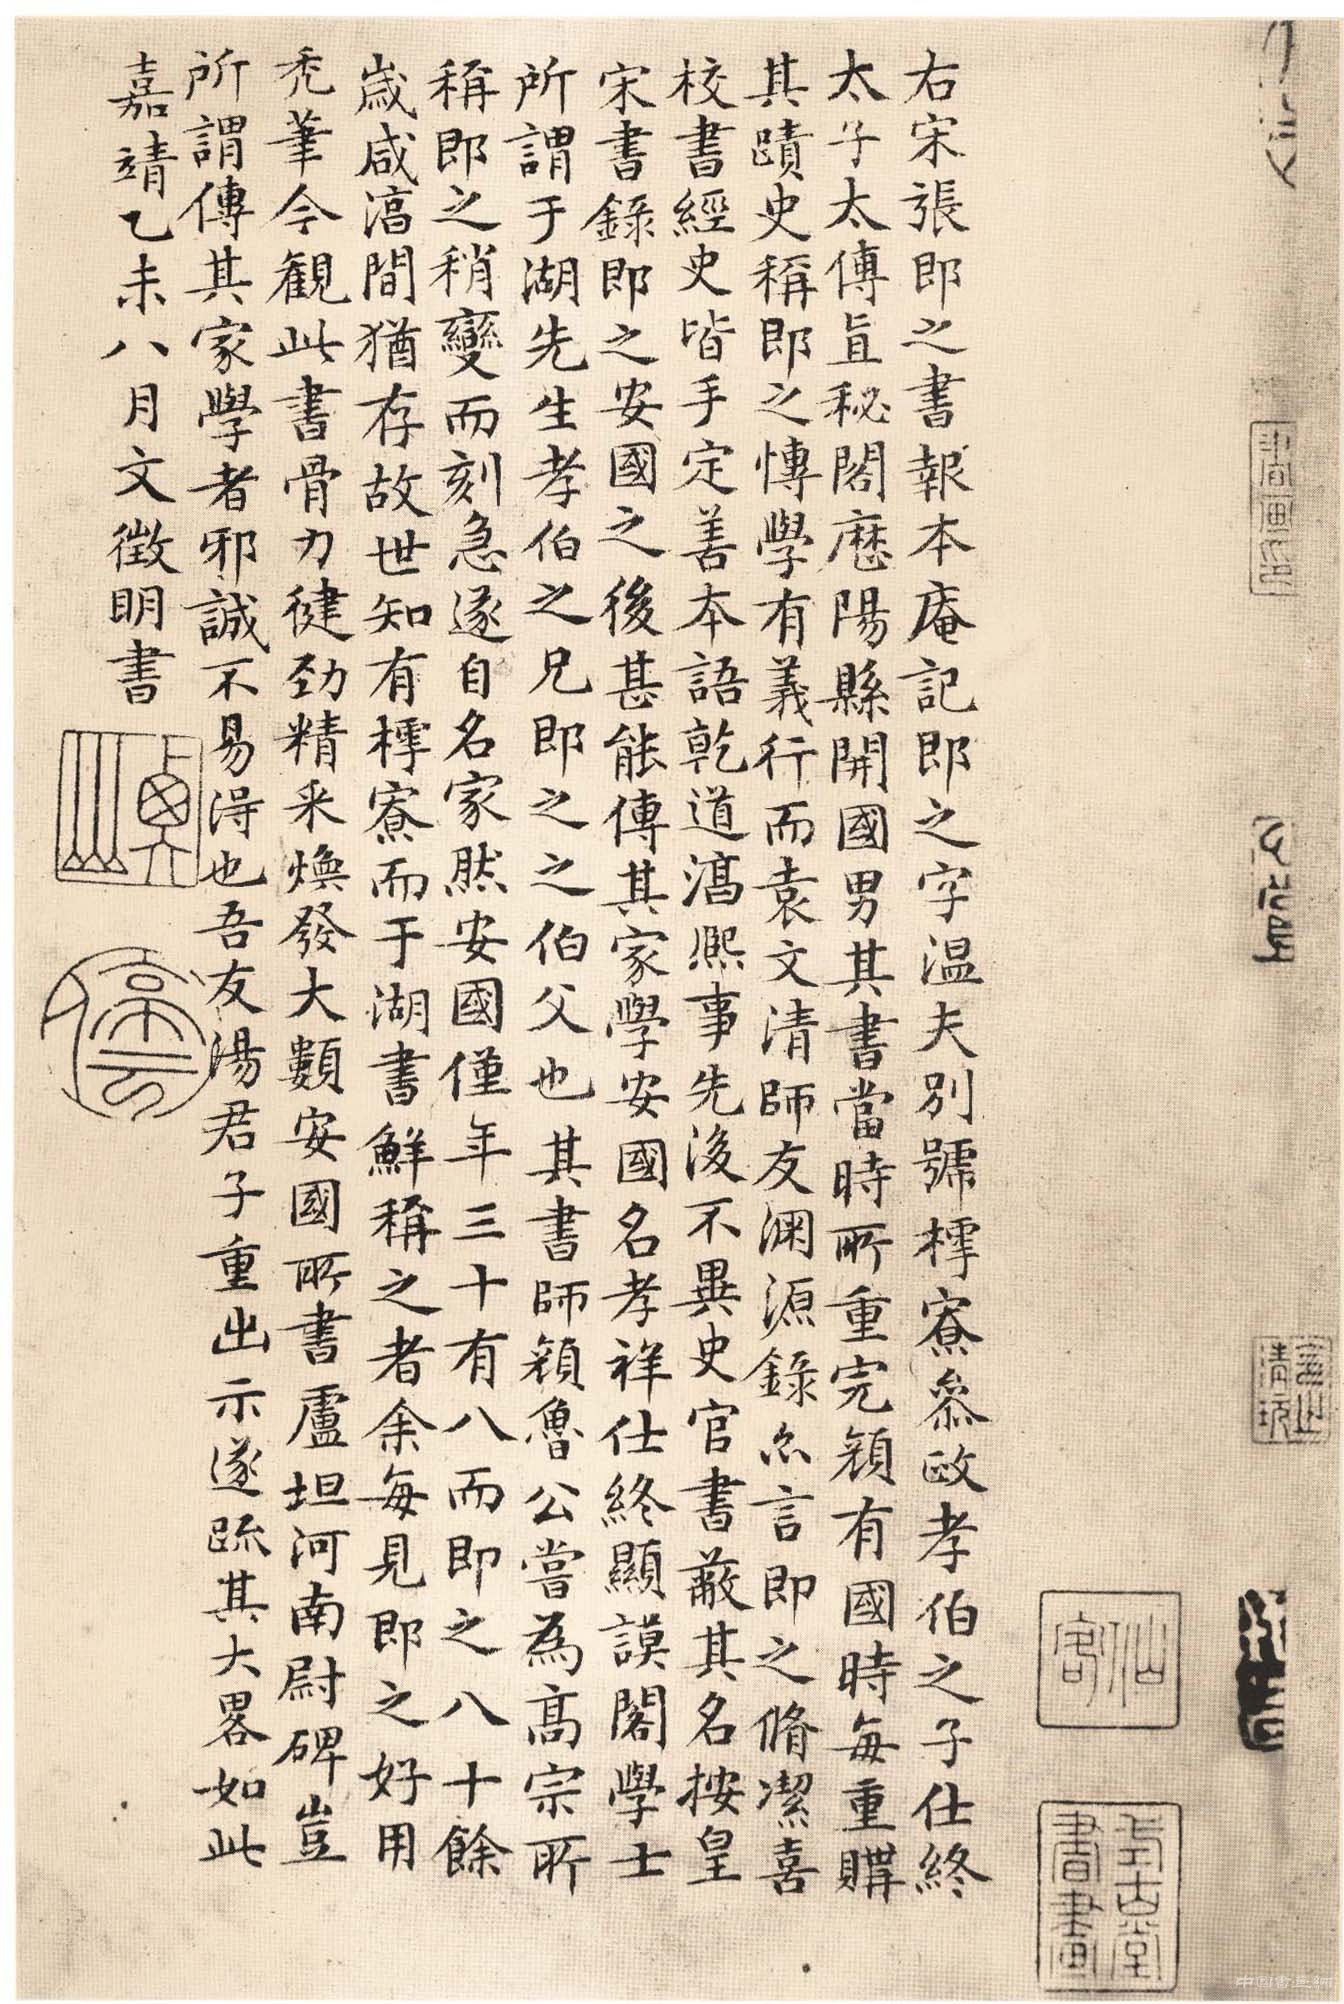 右宋張即之書報本庵記即之字温夫別號樗寮叅政孝伯之子仕終
太子太傅直秘閣歷陽縣開國男其書當時所重完顏有國時每重購
其蹟史稱即之愽學有義行而袁文清師友淵源錄亦言即之脩潔喜
校書經史皆手定善本語乾道淳熙事先後不異史官書蔽其名按皇
宋書錄即之安國之後甚能傳其家學安國名孝祥仕終顯謨閣學士
所謂于湖先生孝伯之兄即之之伯父也其書師顏魯公嘗為高宗所
稱即之稍變而刻急遂自名家然安國僅年三十有八而即之八十餘
歲咸淳間猶存故世知有樗寮而于湖書鮮稱之者余每見即之好用
禿筆今觀此書骨力健勁精采煥發大類安國所書盧坦河南尉碑豈
所謂傳其家學者邪誠不易得也吾友湯君子重出示遂疏其大畧如此
嘉靖乙未八月文徵明書
仙客
式古堂書畫
停雲
中国书画网